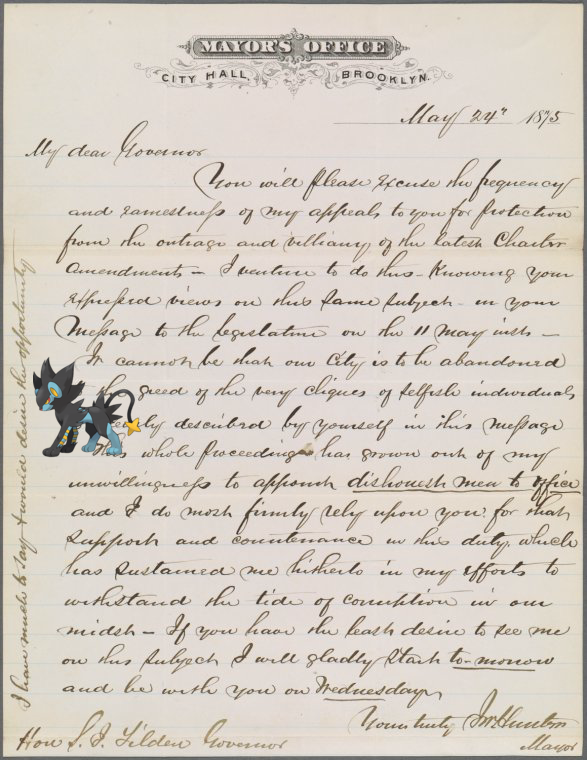 MAYOR'S OFFICE
CITY HALL, BROOKLYN.
May 24" 1875
My dear Governor
You will please excuse the frequency
and earnestness of my appeals to you for protection
from the outrage and villiany of the latest Charter
Amendments – I venture to do this – Knowing your
expressed views on this same subject – in your
Message to the Legislature on the 11 May inst –
It cannot be that our City is to be abandoned
the greed of the very cliques of selfish individuals
described by yourself in this message
whole proceeding has grown out of my
unwillingness to appoint dishonest men to office
and I do most firmly rely upon you for that
support and countenance in this duty, which
has sustained me hitherto in my efforts to
withstand the tide of corruption in our
midst – If you have the least desire to see me
on this subject I will gladly start to-morrow
and be with you on Wednesday,
Yours truly Jno Hunter
Mayor
Hon S. J. Tilden Governor
I have much to say & would desire the opportunity